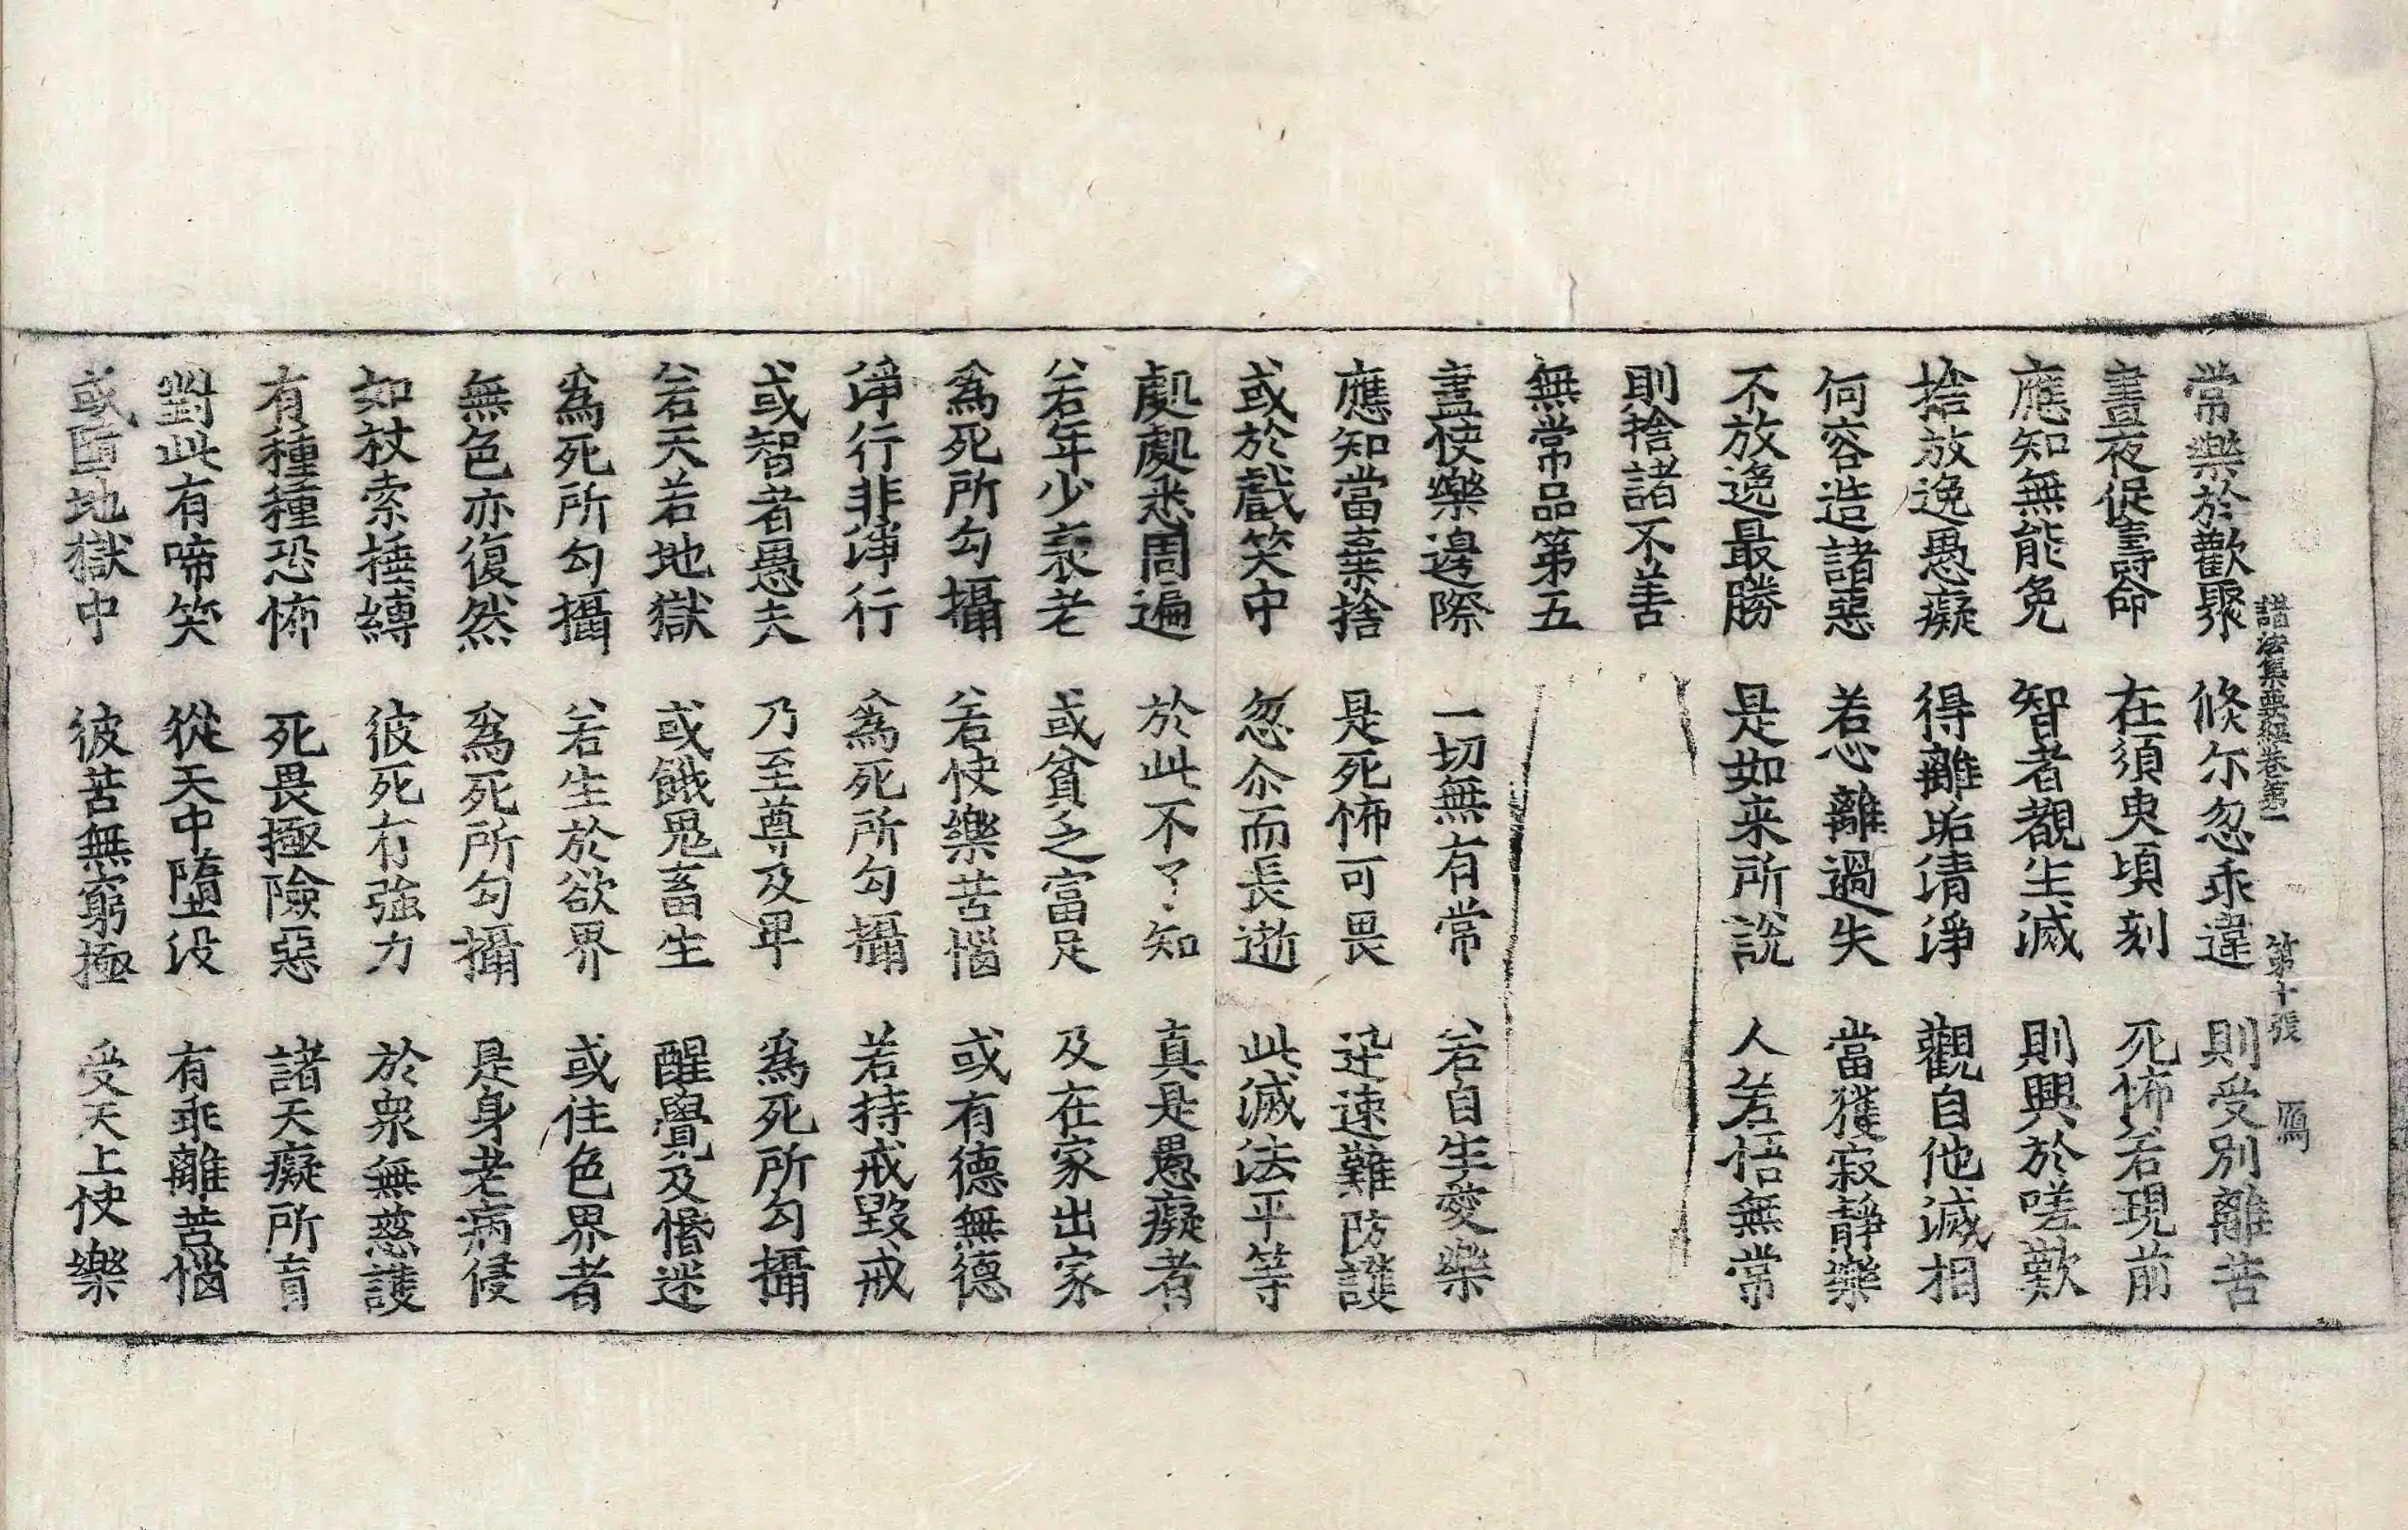 諸法集要經卷第一 第十張 鴈
常樂於歡聚 倐尓忽乖違 則受別離苦
晝夜促壽命 在須臾頃刻 死怖若現前
應知無能免 智者觀生滅 則興於嗟歎
捨放逸愚癡 得離垢清淨 觀自他滅相
何容造諸惡 若心離過失 當獲寂靜樂
不放逸最勝 是如来所說 人若悟無常
則捨諸不善
無常品第五
盡快樂邊際 一切無有常 若自生愛樂
應知當棄捨 是死怖可畏 迅速難防護
或於戲笑中 忽尒而長逝 此滅法平等
處處悉周遍 於此不了知 真是愚癡者
若年少衰老 或貧乏富足 及在家出家
為死所勾攝 若快樂苦惱 或有德無德
淨行非淨行 為死所勾攝 若持戒毀戒
或智者愚夫 乃至尊及卑 為死所勾攝
若天若地獄 或餓鬼畜生 醒覺及惛迷
為死所勾攝 若生於欲界 或住色界者
無色亦復然 為死所勾攝 是身老病侵
如杖索捶縛 彼死有強力 於衆無慈護
有種種恐怖 死畏極險惡 諸天癡所盲
對此有啼笑 從天中墮沒 有乖離苦惱
或墮地獄中 彼苦無窮極 受天上快樂